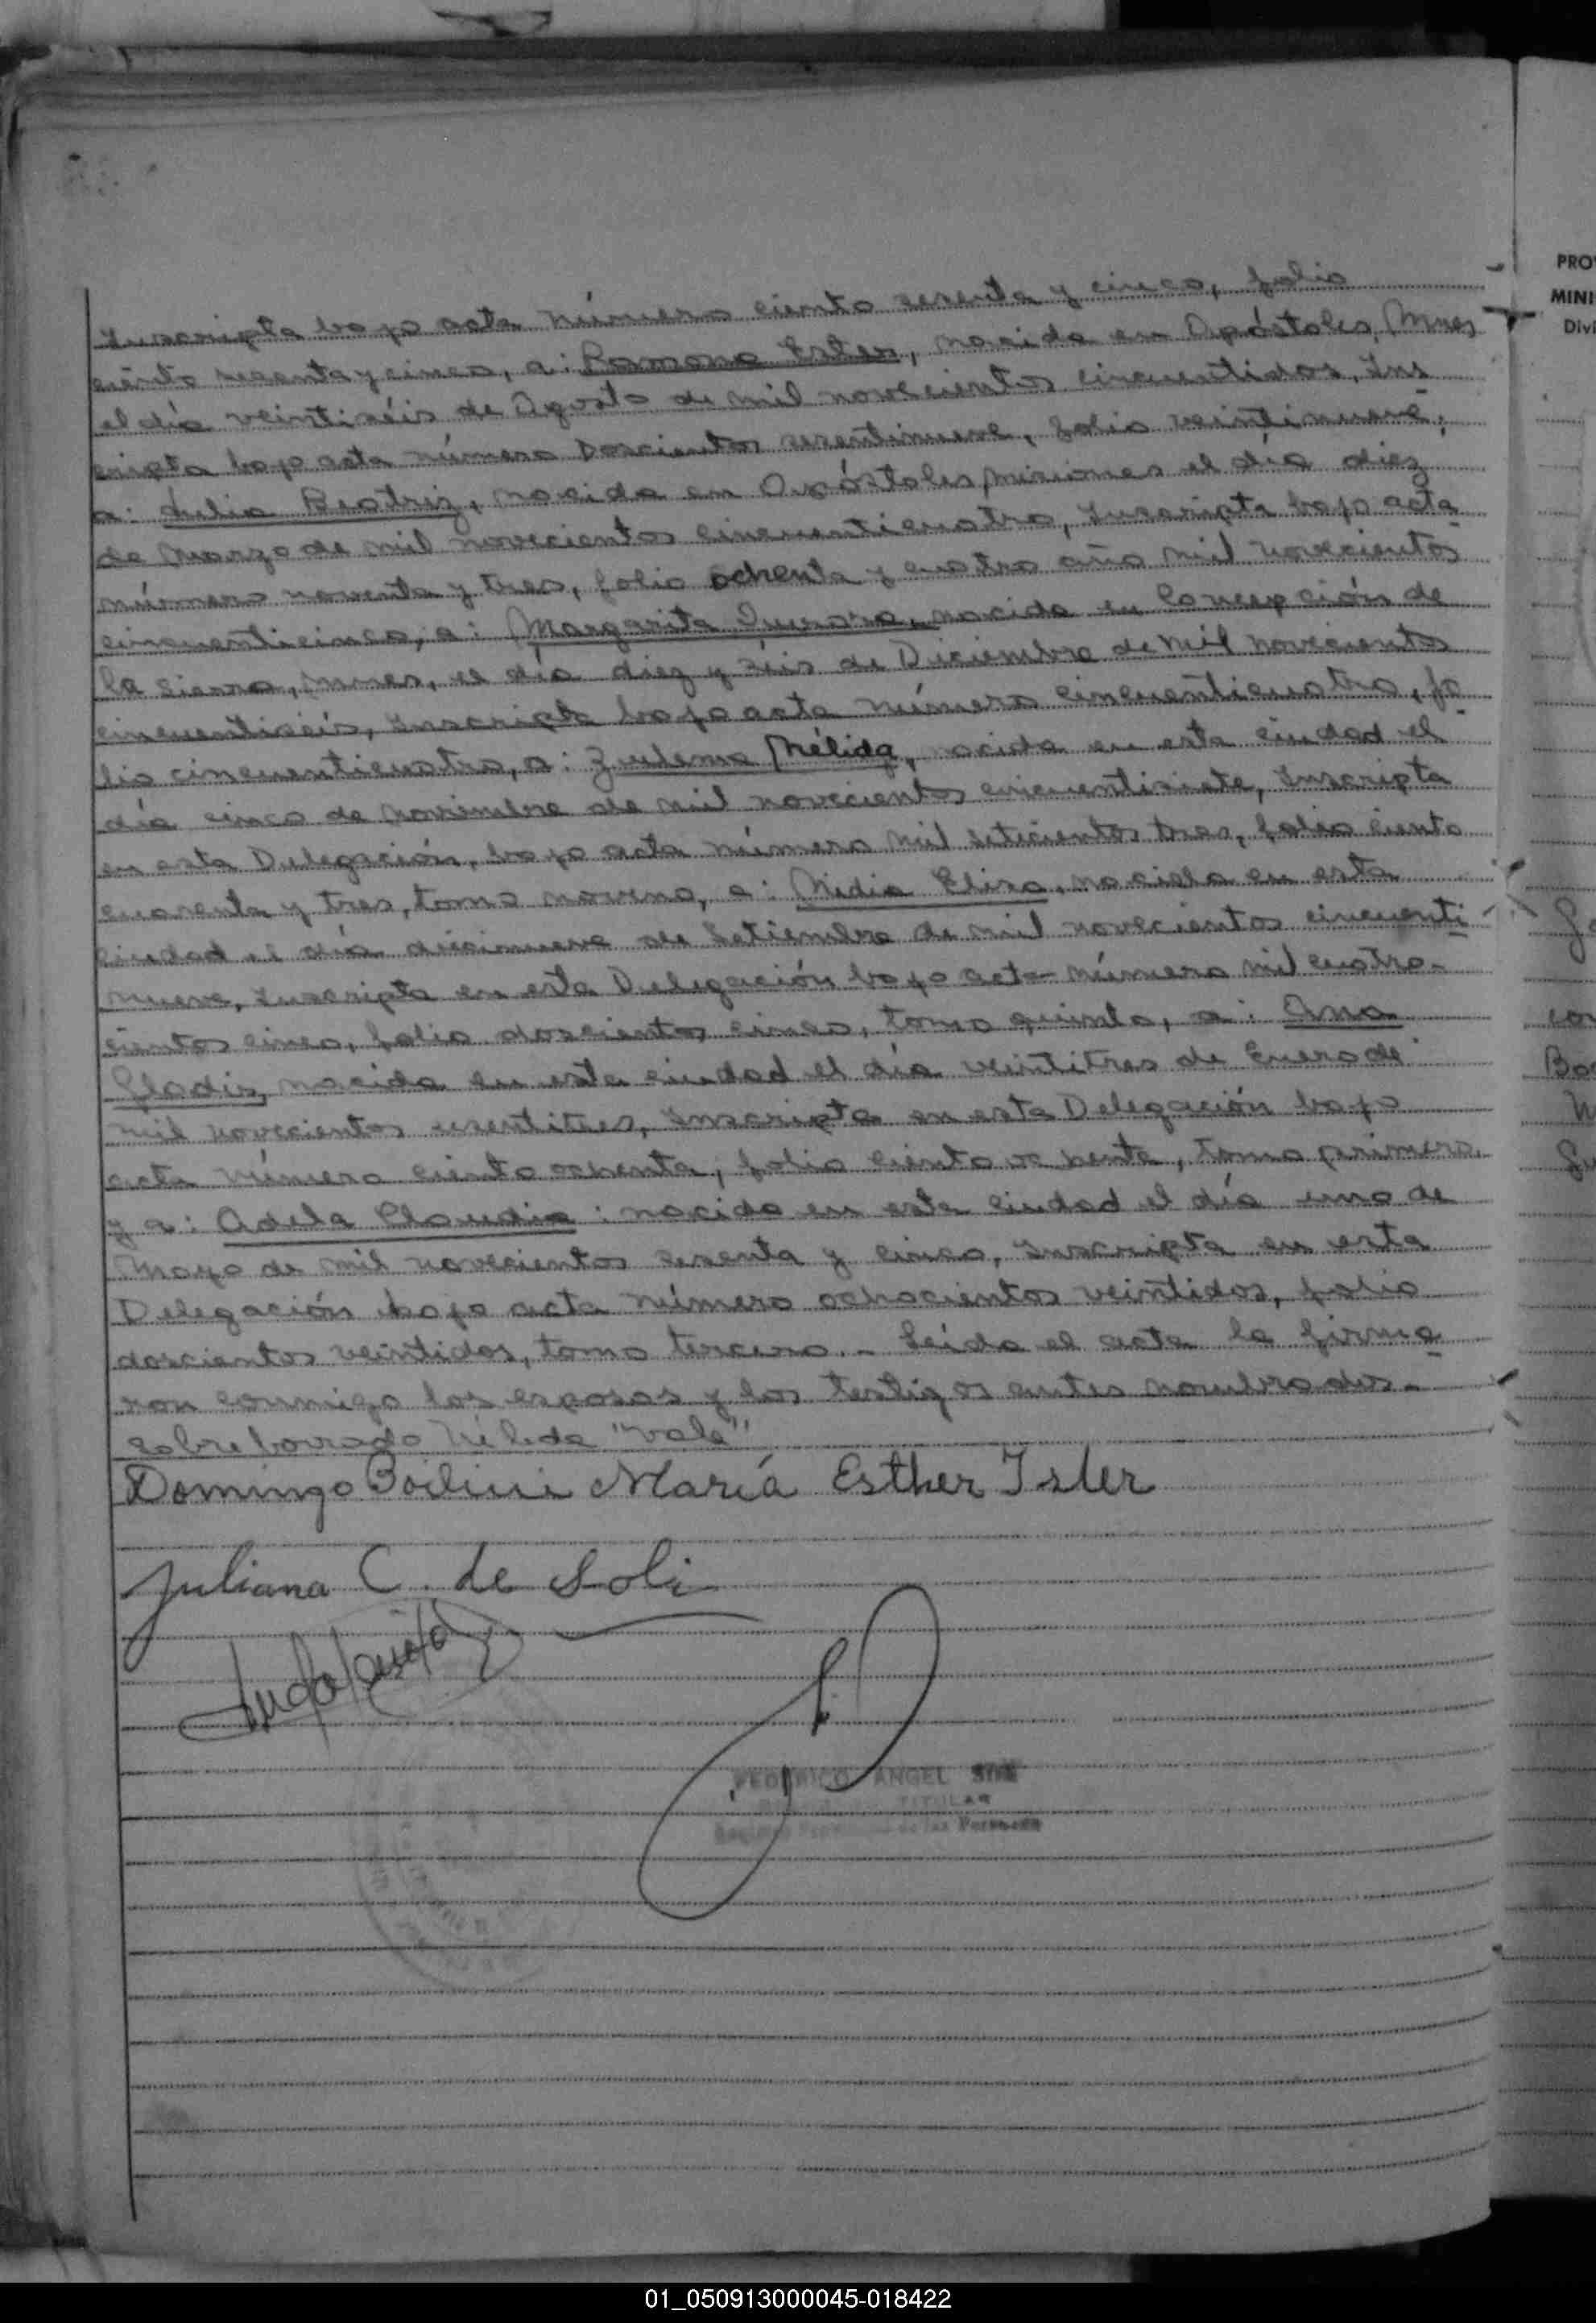 Inscripta bajo acta número ciento sesenta y cinco, folio
ciento sesenta y cinco, a: Ramona Ester, nacida en Apóstoles, Mnes
el día veintiséis de Agosto de mil novecientos cincuentidos, Ins
cripta bajo acta número Doscientos sesentinueve, folio veintinueve,
a: Julia Beatriz, nacida en Apóstoles, Misiones el día diez
de Marzo de mil novecientos cincuenticuatro, Inscripta bajo acta
número noventa y tres, folio ochenta y cuatro año mil novecientos
cincuenticinco, a: Margarita nacida en Concepción de
la Sierra, Mnes, el día diez y séis de Diciembre de mil novecientos
cincuentiséis, Inscripta bajo acta número cincuenticuatro, fo
lio cincuenticuatro, a: Zulema Nélida, nacida en esta ciudad el
día cinco de Noviembre de mil novecientos cincuentisiete, Inscripta
en esta Delegación, bajo acta número mil setecientos tres, folio ciento
cuarenta y tres, tomo noveno, a: Nidia Elisa, nacida en esta
ciudad el día diecinueve de Setiembre de mil novecientos cincuenti
nueve, Inscripta en esta Delegación bajo acta número mil cuatro-
cientos cinco, folio doscientos cinco, tomo quinto, a: Ana
Gladis, nacida en esta ciudad el día veintitres de Enero de
mil novecientos sesentitres, Inscripta en esta Delegación bajo
acta número ciento ochenta, folio ciento ochenta, tomo primero,
y a: Adela Claudia: nacida en esta ciudad el día uno de
Mayo de mil novecientos sesenta y cinco, Inscripta en esta
Delegación bajo acta número ochocientos veintidos, folio
doscientos veintidos, tomo tercero.- Leída el acta la firma
ron conmigo los esposos y los testigos antes nombrados.-
sobre borrado Nélida "Vale"
Domingo María Esther Isler
Juliana C. de Soli
FEDERICO ANGEL
TITULAR
de las Personas
PRO
MINI
Divi
01_050913000045-018422